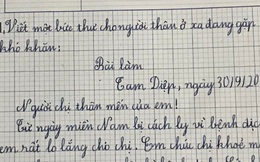 1. Viết một bức thư cho người thân ở xa đang gặp
khó khăn:
Bài làm
Tam Điệp, ngày 30/9/20
Người chị thân mến của em!
Từ ngày miền Nam bị cách ly vì bệnh dịc
em rất lo lắng cho chị. Em chúc chị khoẻ m